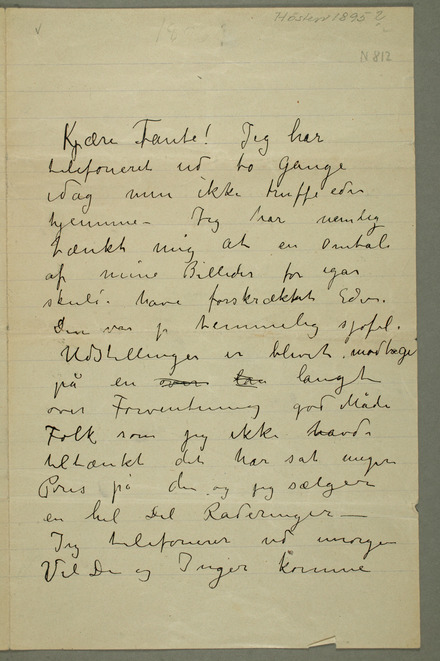 Høsten 1895?
N 812
Kjære Tante! Jeg har
telefoneret ud to Gange
idag men ikke truffe eder
hjemme – Jeg har nemlig
tænkt mig at en Omtale
af mine Billeder for igår
skulde have forskrækket Eder.
Den var jo temmelig sjofel.
Udstillingen er blevet modtaget
på en over langt
over Forventning god Måde
Folk som jeg ikke havde
tiltænkt det har sat megen
Pris på den og jeg sælger
en hel Del Raderinger –
Jeg telefonerer ud imorgen
Vil De og Inger komme